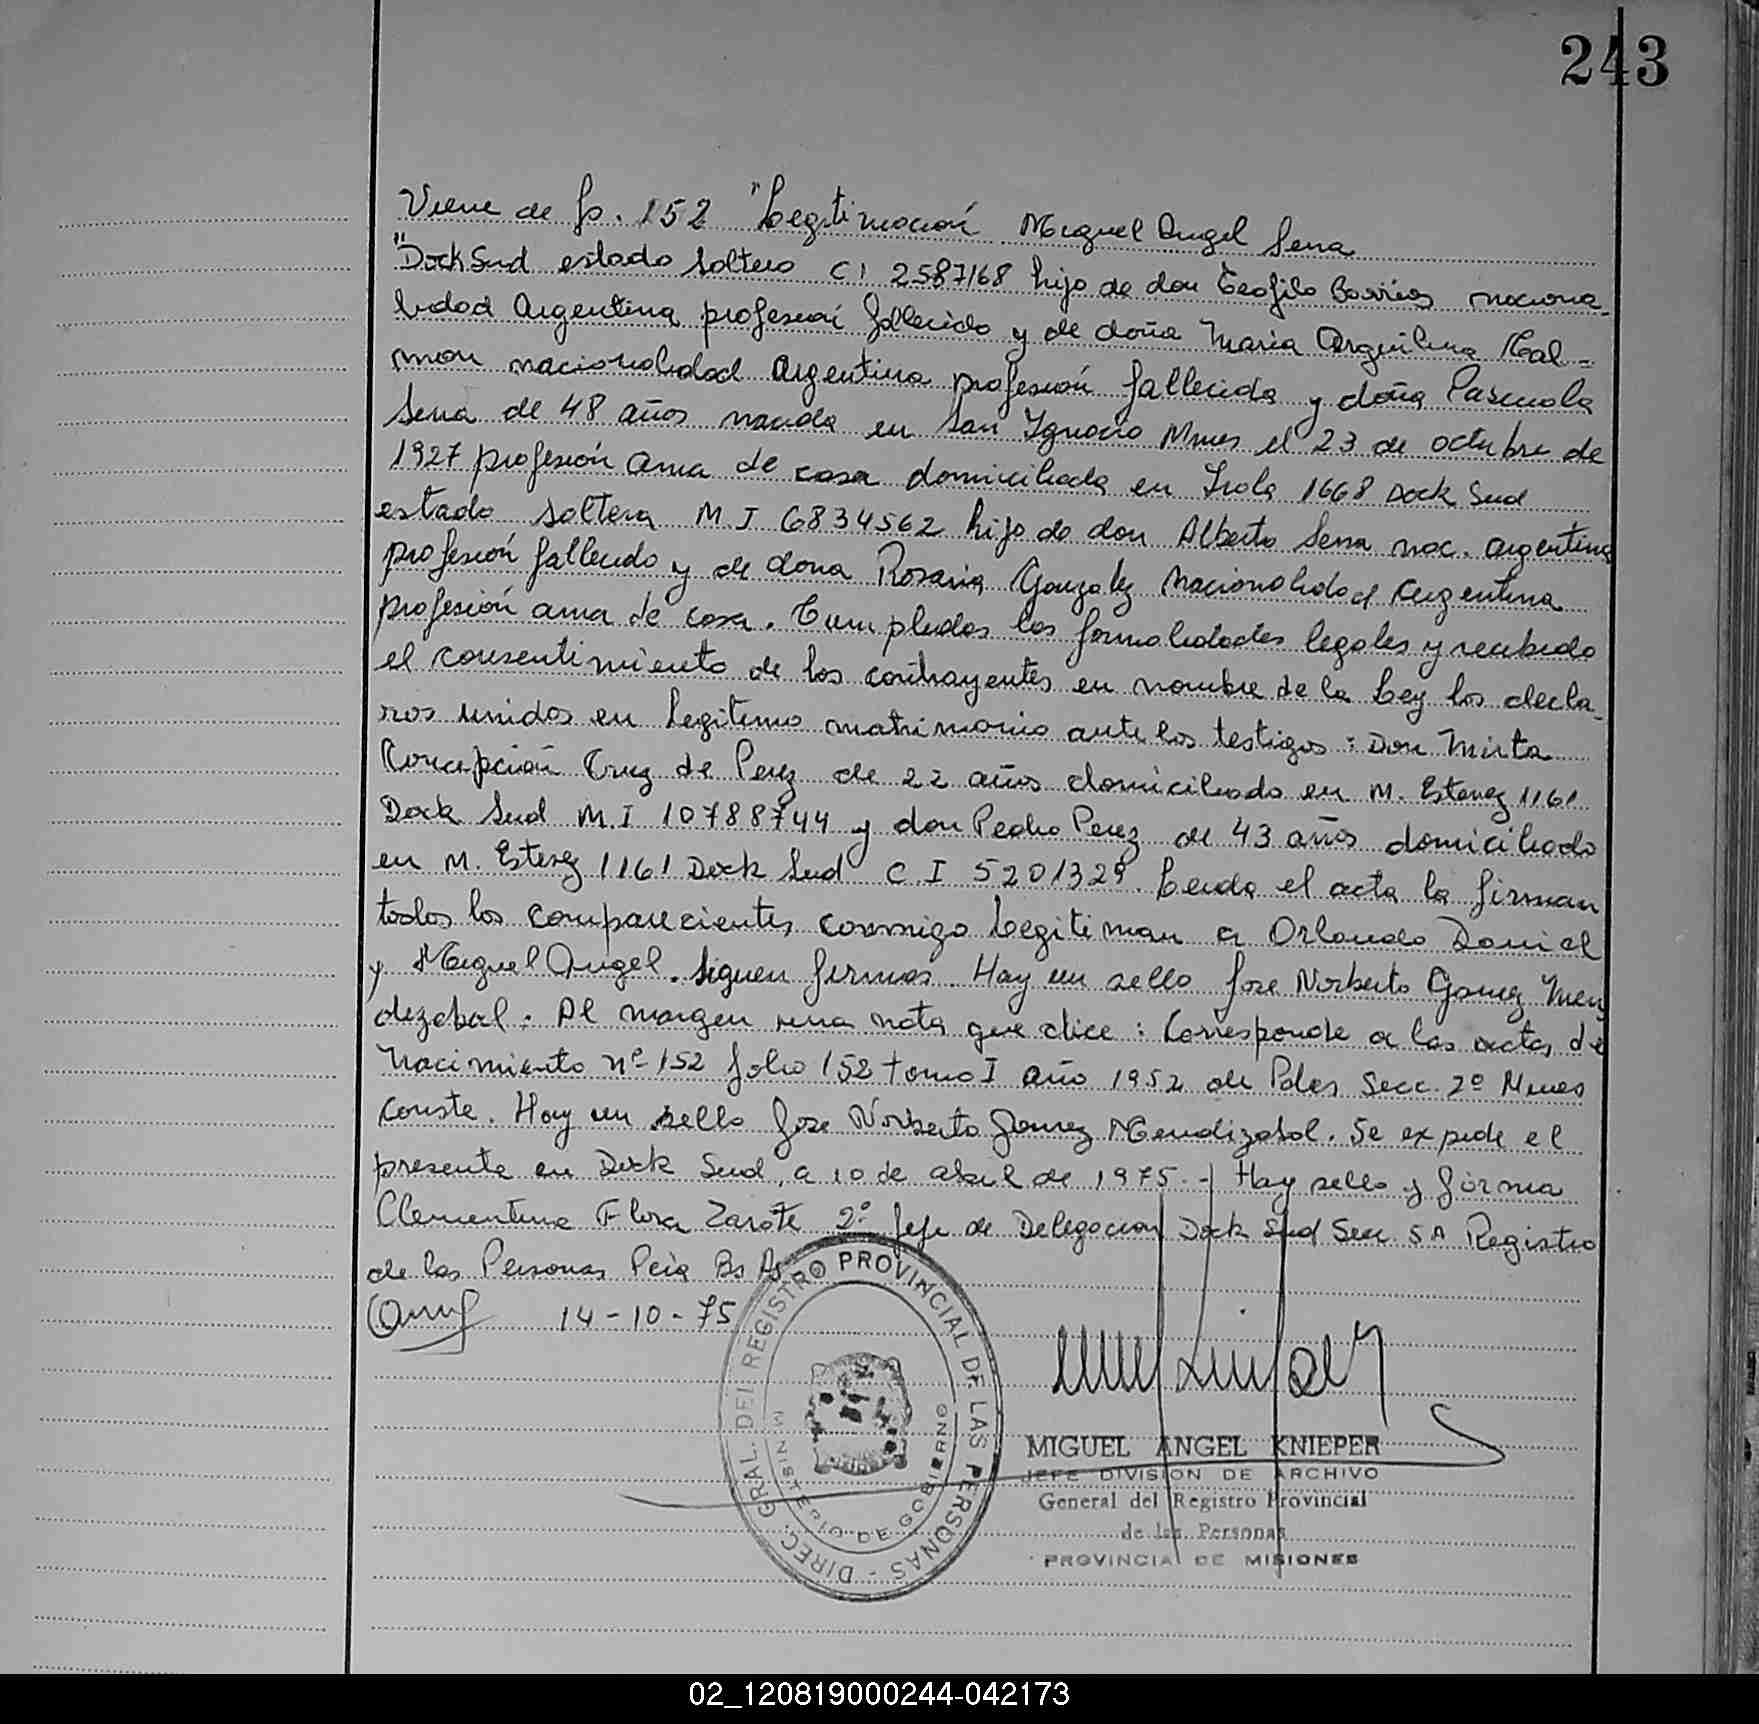 243
Viene de fs. 152 "Legitimación Miguel Angel Sena
"Dock Sud estado soltero C I 2587168 hijo de don Teofilo Barrios naciona_
lidad Argentina profesión fallecido y de doña Maria Arquilina
mon nacionalidad Argentina profesión fallecida y doña Pascuala
Sena de 48 años nacida en San Ignacio Mnes el 23 de octubre de
1927 profesión ama de casa domiciliada en Irola 1668 Dock Sud
estado soltera M I 6834562 hijo de don Alberto Sena nac. argentina
profesión fallecido y de dona Rosaria Gonzalez nacionalidad Argentina
profesión ama de casa. Cumplidas las formalidades legales y recibido
el consentimiento de los contrayentes en nombre de la Ley los decla_
ros unidos en legitimo matrimonio ante los testigos : Don Mirta
Concepción Cruz de Perez de 22 años domiciliado en M. Estevez 1161
Dock Sud M.I 10788744 y don Pedro Perez de 43 años domiciliado
en M. Estevez 1161 Dock Sud C.I 5201329. Leida el acta la firman
todos los comparecientes conmigo Legitiman a Orlando Daniel
y Miguel Angel. Siguen firmas. Hay un sello Jose Norberto Gomez Men
dizabal. Al margen una nota que dice : Corresponde a las actas de
Nacimiento nº 152 folio 152 tomo I año 1952 de Pdas Secc. 2º Mnes
Conste. Hay un sello Jose Norberto Gomez Mendizabal. Se expide el
presente en Dock Sud, a 10 de abril de 1975.- Hay sello y firma
Clementina Flora Zarate 2º Jefe de Delegacion Dock Sud Secc. 5A Registro
de las Personas Pcia Bs As
14-10-75
DIREC. GRAL. DEL REGISTRO PROVINCIAL DE LAS PERSONAS -
MINISTERIO DE GOBIERNO
MIGUEL ANGEL KNIEPER
JEFE DIVISION DE ARCHIVO
General del Registro Provincial
de las Personas
PROVINCIA DE MISIONES
02_120819000244-042173